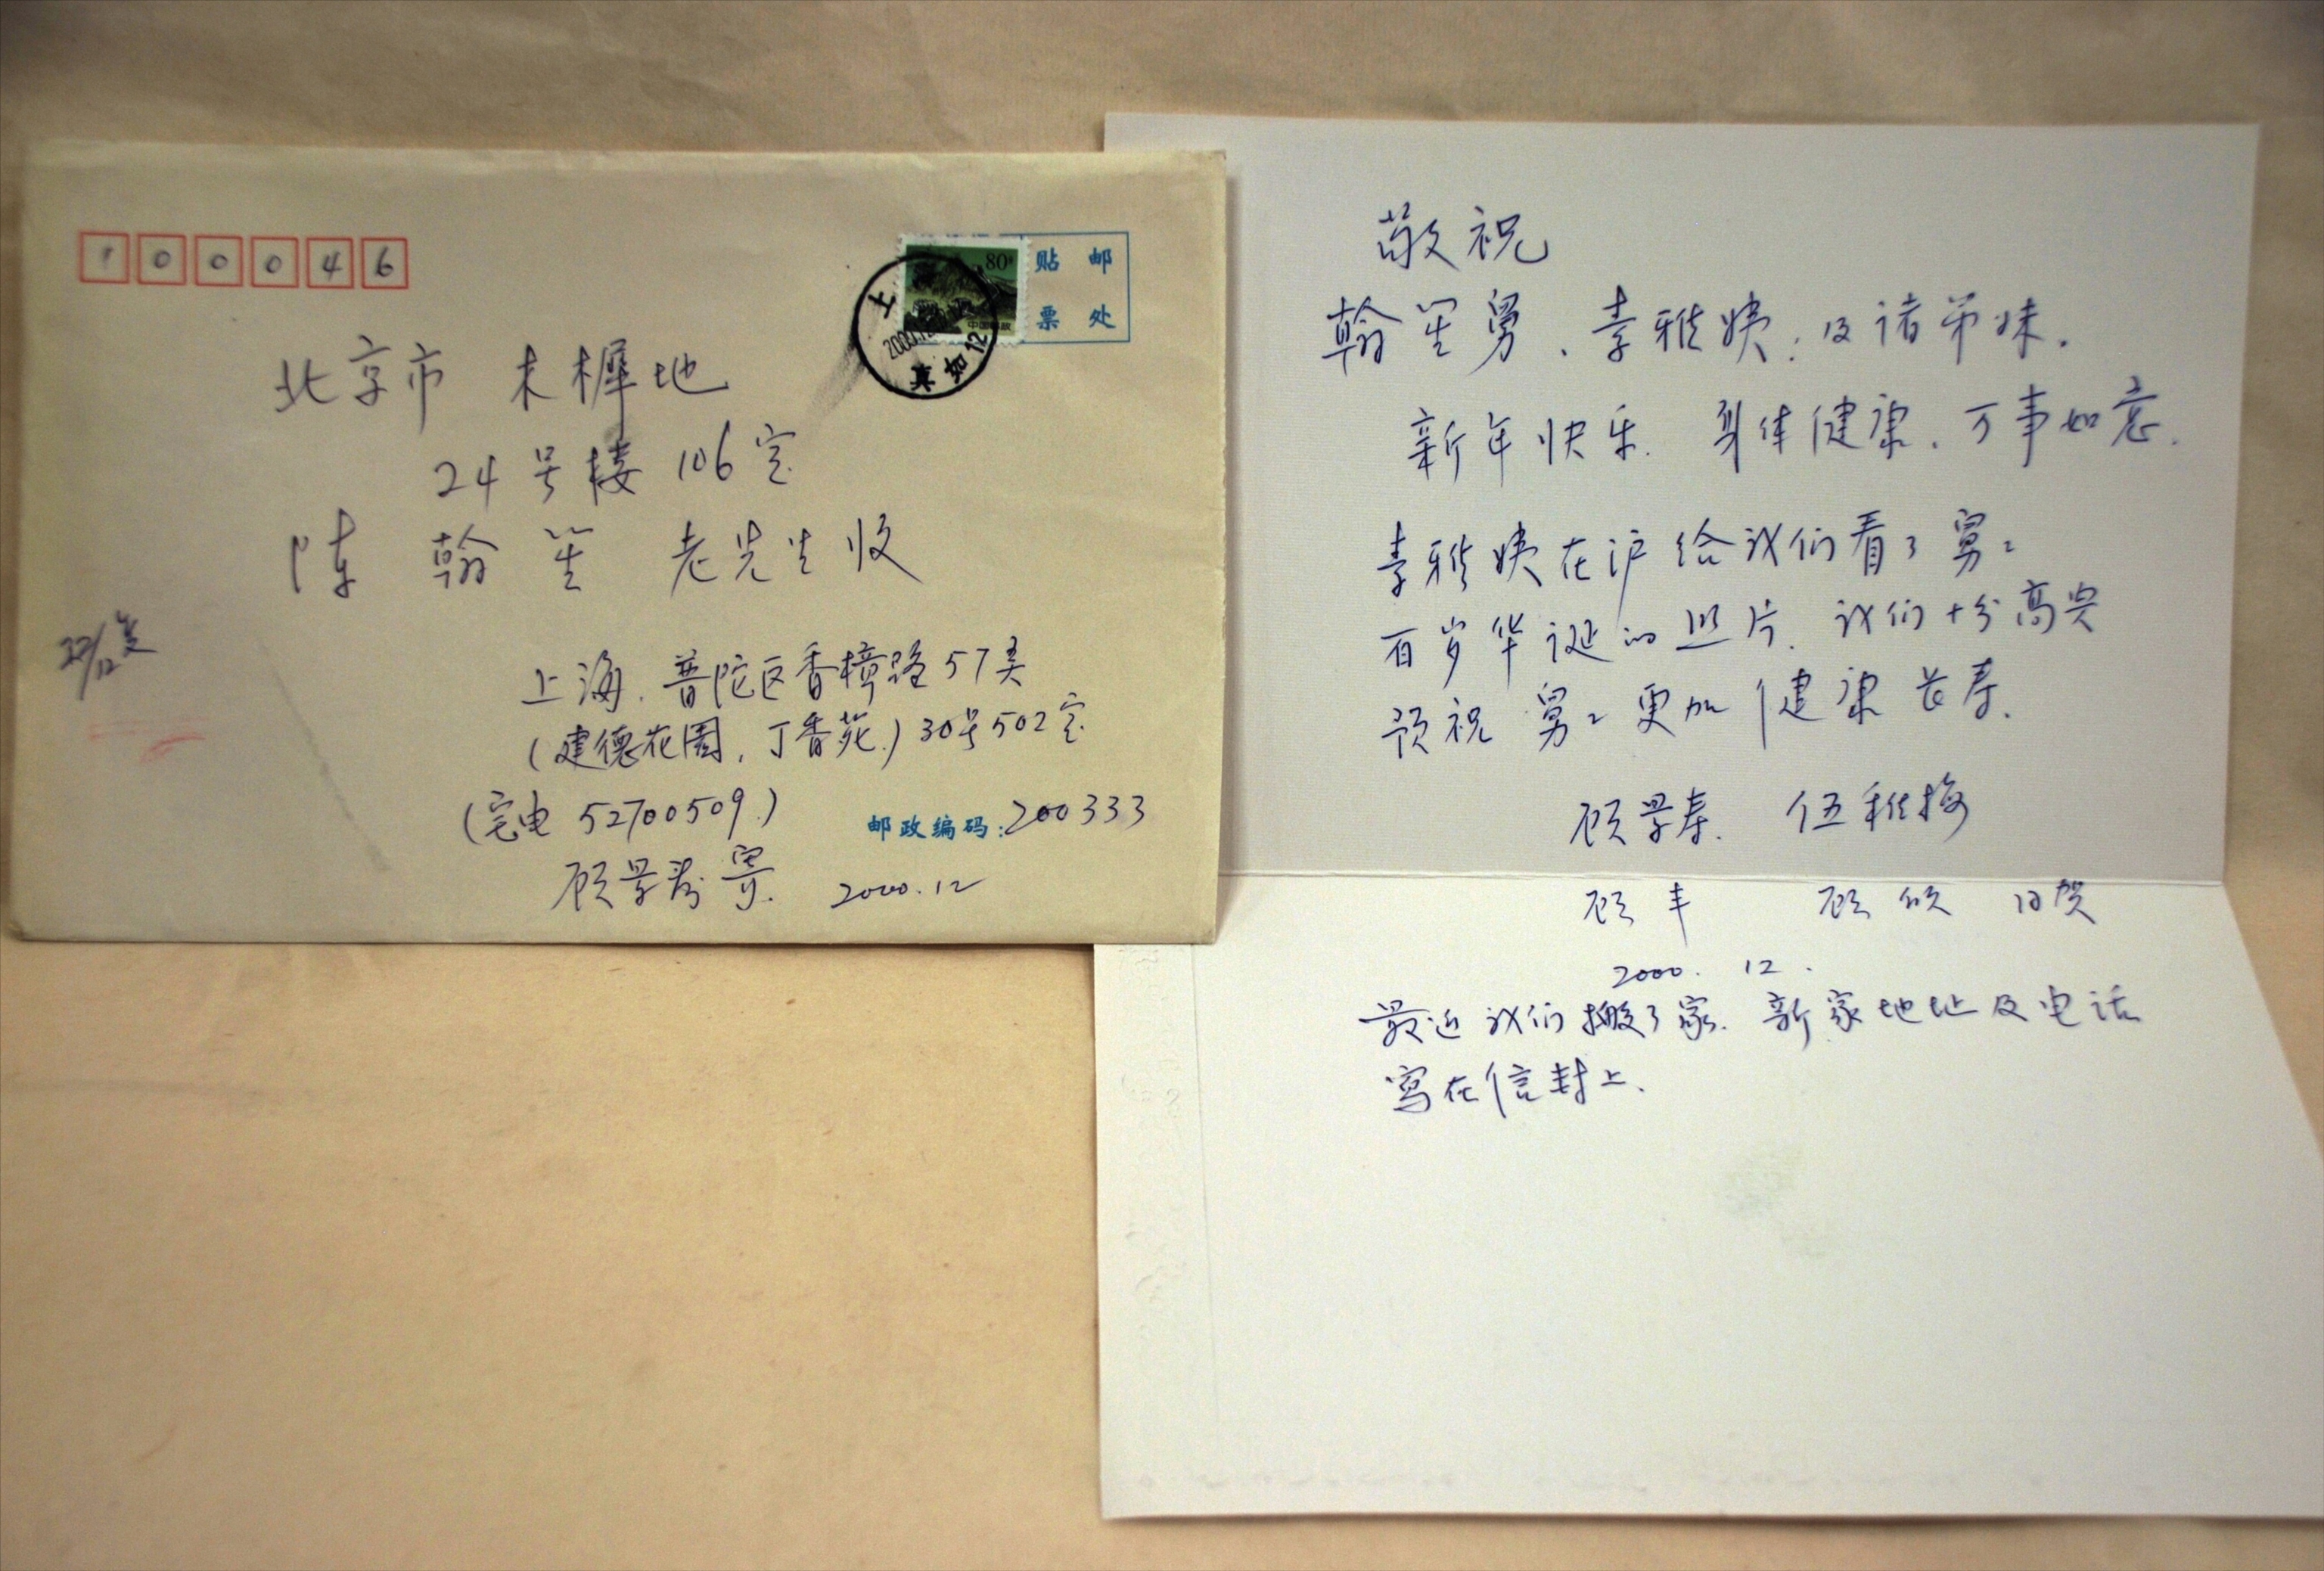 100046
80分
中国邮政
贴 邮
票 处
上
2000.12
真如12
北京市 木樨地
24号楼 106室
陈 翰笙 老先生收
上海.普陀区香樟路57弄
(建德花园,丁香苑.)30号502室
(宅电 52700509.)
邮政编码:200333
顾景寿寄. 2000.12
敬祝
翰笙舅、素雅姨:及诸弟妹.
新年快乐.身体健康.万事如意.
素雅姨在沪给我们看了舅舅
百岁华诞的照片.我们十分高兴
预祝舅舅更加健康长寿.
顾景寿. 伍稚梅
顾丰 顾欣 同贺
2000. 12.
最近我们搬了家.新家地址及电话
写在信封上.